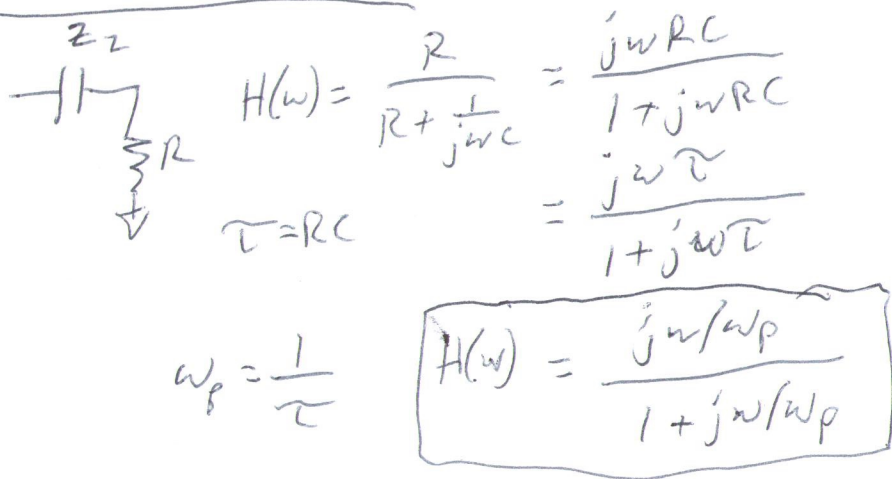 Z₂
R
H(ω) = R / (R + 1/(jωC)) = jωRC / (1 + jωRC)
τ = RC
= jωτ / (1 + jωτ)
ωₚ = 1/τ
H(ω) = jω/ωₚ / (1 + jω/ωₚ)